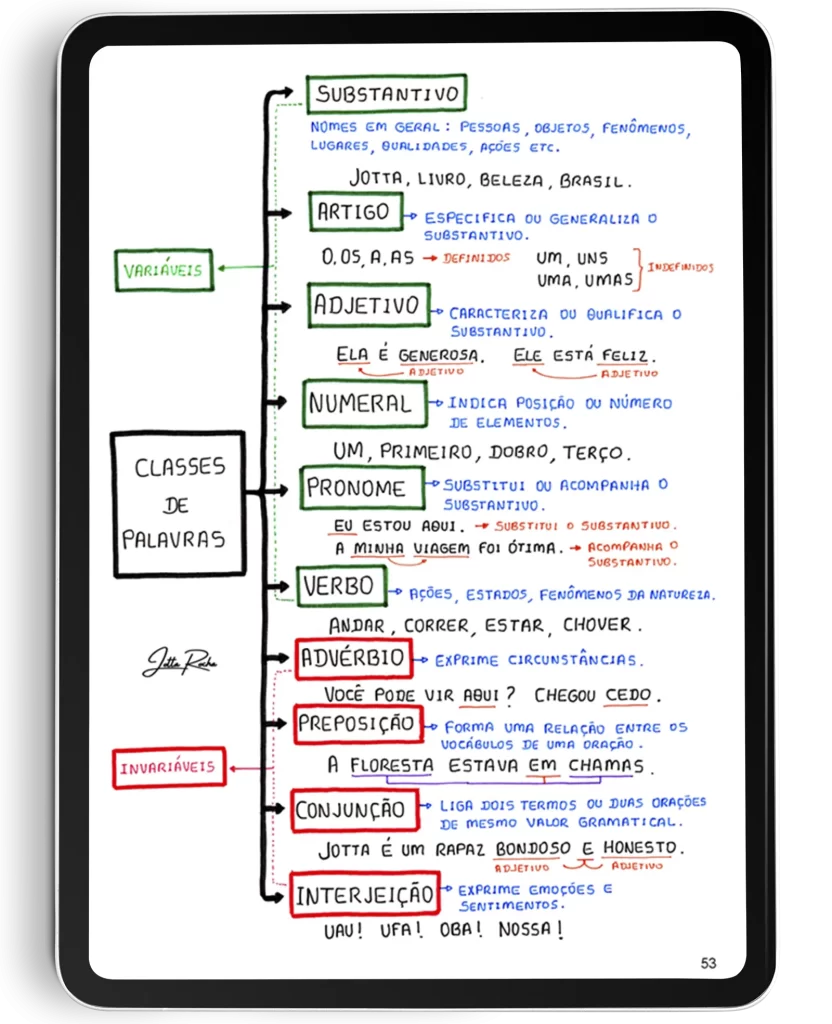 SUBSTANTIVO
NOMES EM GERAL: PESSOAS, OBJETOS, FENÔMENOS,
LUGARES, QUALIDADES, AÇÕES ETC.
JOTTA, LIVRO, BELEZA, BRASIL.
ARTIGO
ESPECIFICA OU GENERALIZA O
SUBSTANTIVO.
O, OS, A, AS → DEFINIDOS
UM, UNS
UMA, UMAS
INDEFINIDOS
VARIÁVEIS
ADJETIVO
CARACTERIZA OU QUALIFICA O
SUBSTANTIVO.
ELA É GENEROSA. ELE ESTÁ FELIZ.
ADJETIVO ADJETIVO
NUMERAL
INDICA POSIÇÃO OU NÚMERO
DE ELEMENTOS.
UM, PRIMEIRO, DOBRO, TERÇO.
CLASSES
DE
PALAVRAS
PRONOME
SUBSTITUI OU ACOMPANHA O
SUBSTANTIVO.
EU ESTOU AQUI. → SUBSTITUI O SUBSTANTIVO.
A MINHA VIAGEM FOI ÓTIMA. → ACOMPANHA O
SUBSTANTIVO.
VERBO
AÇÕES, ESTADOS, FENÔMENOS DA NATUREZA.
ANDAR, CORRER, ESTAR, CHOVER.
Jotta Rocha
ADVÉRBIO
EXPRIME CIRCUNSTÂNCIAS.
VOCÊ PODE VIR AQUI? CHEGOU CEDO.
PREPOSIÇÃO
FORMA UMA RELAÇÃO ENTRE OS
VOCÁBULOS DE UMA ORAÇÃO.
A FLORESTA ESTAVA EM CHAMAS.
INVARIÁVEIS
CONJUNÇÃO
LIGA DOIS TERMOS OU DUAS ORAÇÕES
DE MESMO VALOR GRAMATICAL.
JOTTA É UM RAPAZ BONDOSO E HONESTO.
ADJETIVO ADJETIVO
INTERJEIÇÃO
EXPRIME EMOÇÕES E
SENTIMENTOS.
UAU! UFA! OBA! NOSSA!
53